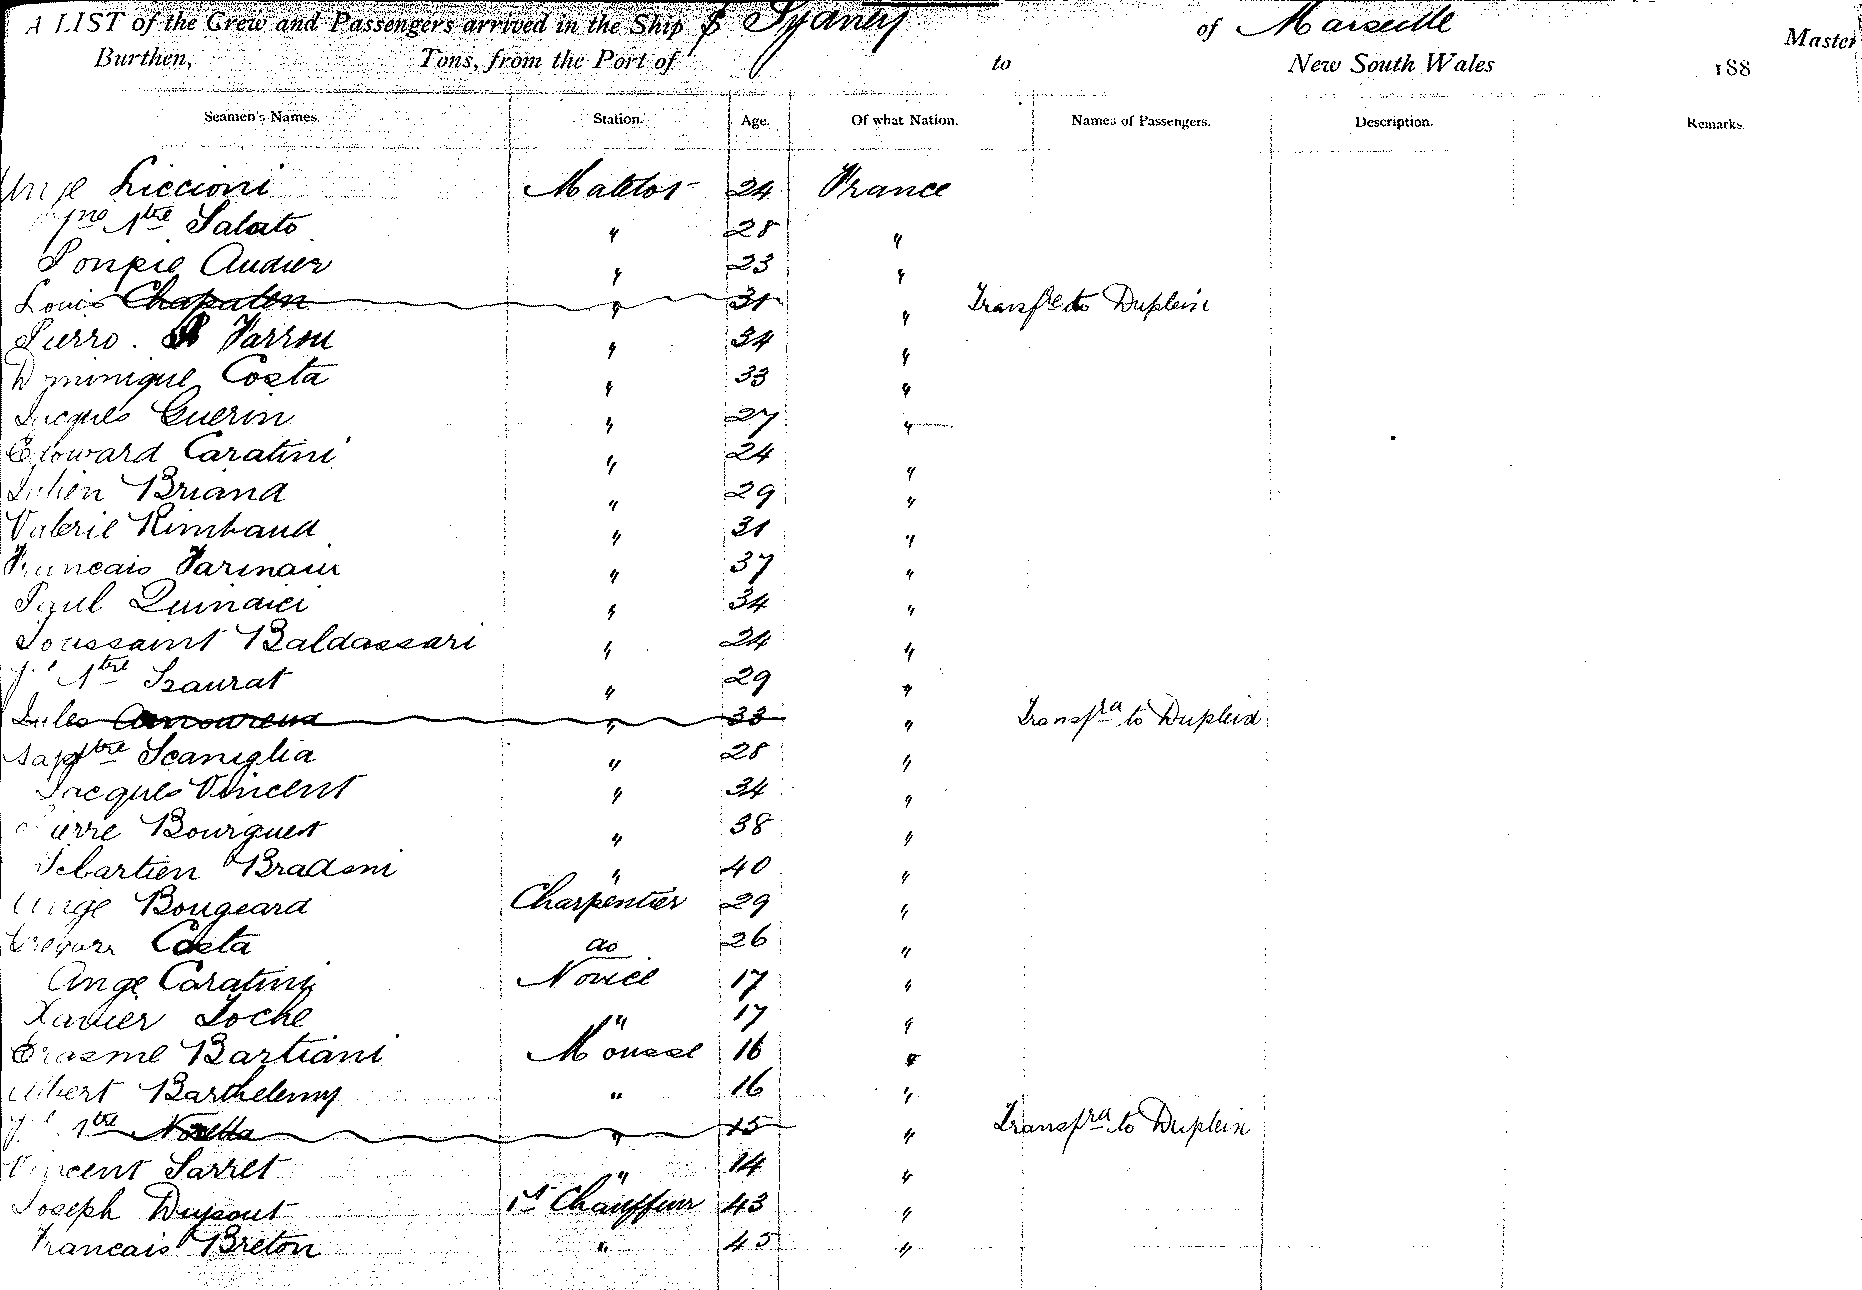 A LIST of the Crew and Passengers arrived in the Ship Sydney of Marseille Master
Burthen, Tons, from the Port of to New South Wales 188
Seamen's Names. Station. Age. Of what Nation. Names of Passengers. Description. Remarks.
Ange Liccioni Matelot 24 France
Jne Btre Salato " 28 "
Audier " 23 "
Louis Chapalen " 31 " to Dupleix
Pierre Farrou " 34 "
Dominique Costa " 33 "
Jacques Guerin " 27 "
Edouard Caratini " 24 "
Julien Briand " 29 "
Valerie Rimbaud " 31 "
Francais " 37 "
Paul Quindici " 34 "
Toussaint Baldassari " 24 "
Btre " 29 "
Jules Amoureux " 33 " Transfrd to Dupleix
Scaniglia " 28 "
Jacques Vincent " 34 "
Pierre Bourguet " 38 "
Sebastien " 40 "
Ange Bougeard Charpentier 29 "
Costa do 26 "
Ange Caratini Novice 17 "
Xavier Loche " 17 "
Erasme Bartiani Mousse 16 "
Albert Barthelemy " 16 "
Btre " 15 " Transfrd to Dupleix
Vincent Sarret " 14 "
Joseph 1st Chauffeur 43 "
Francais Breton " 45 "